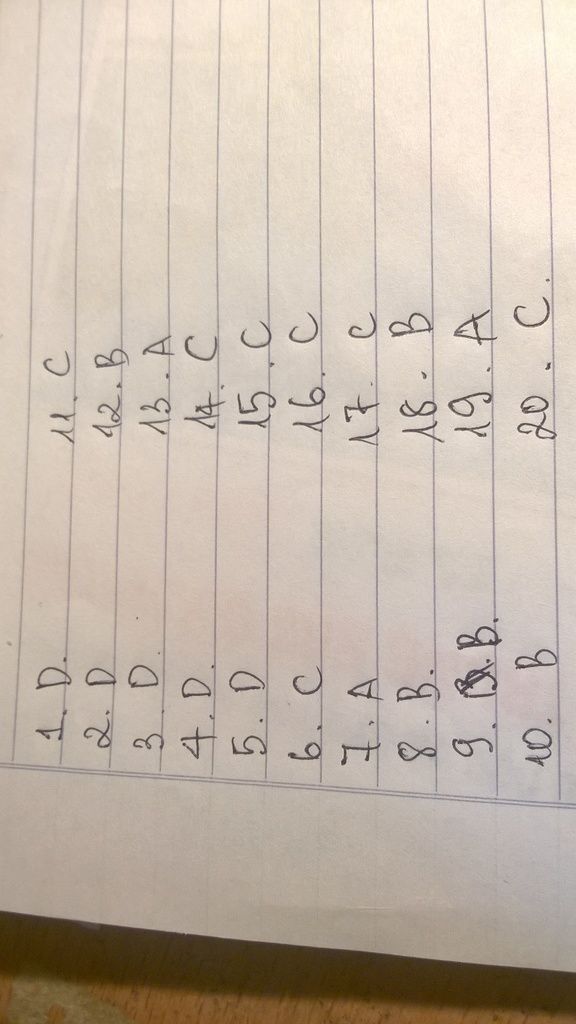 1. D. 11. C
2. D 12. B
3. D. 13. A
4. D. 14. C
5. D 15. C
6. C 16. C
7. A 17. C
8. B. 18. B
9. B. 19. A
10. B 20. C.